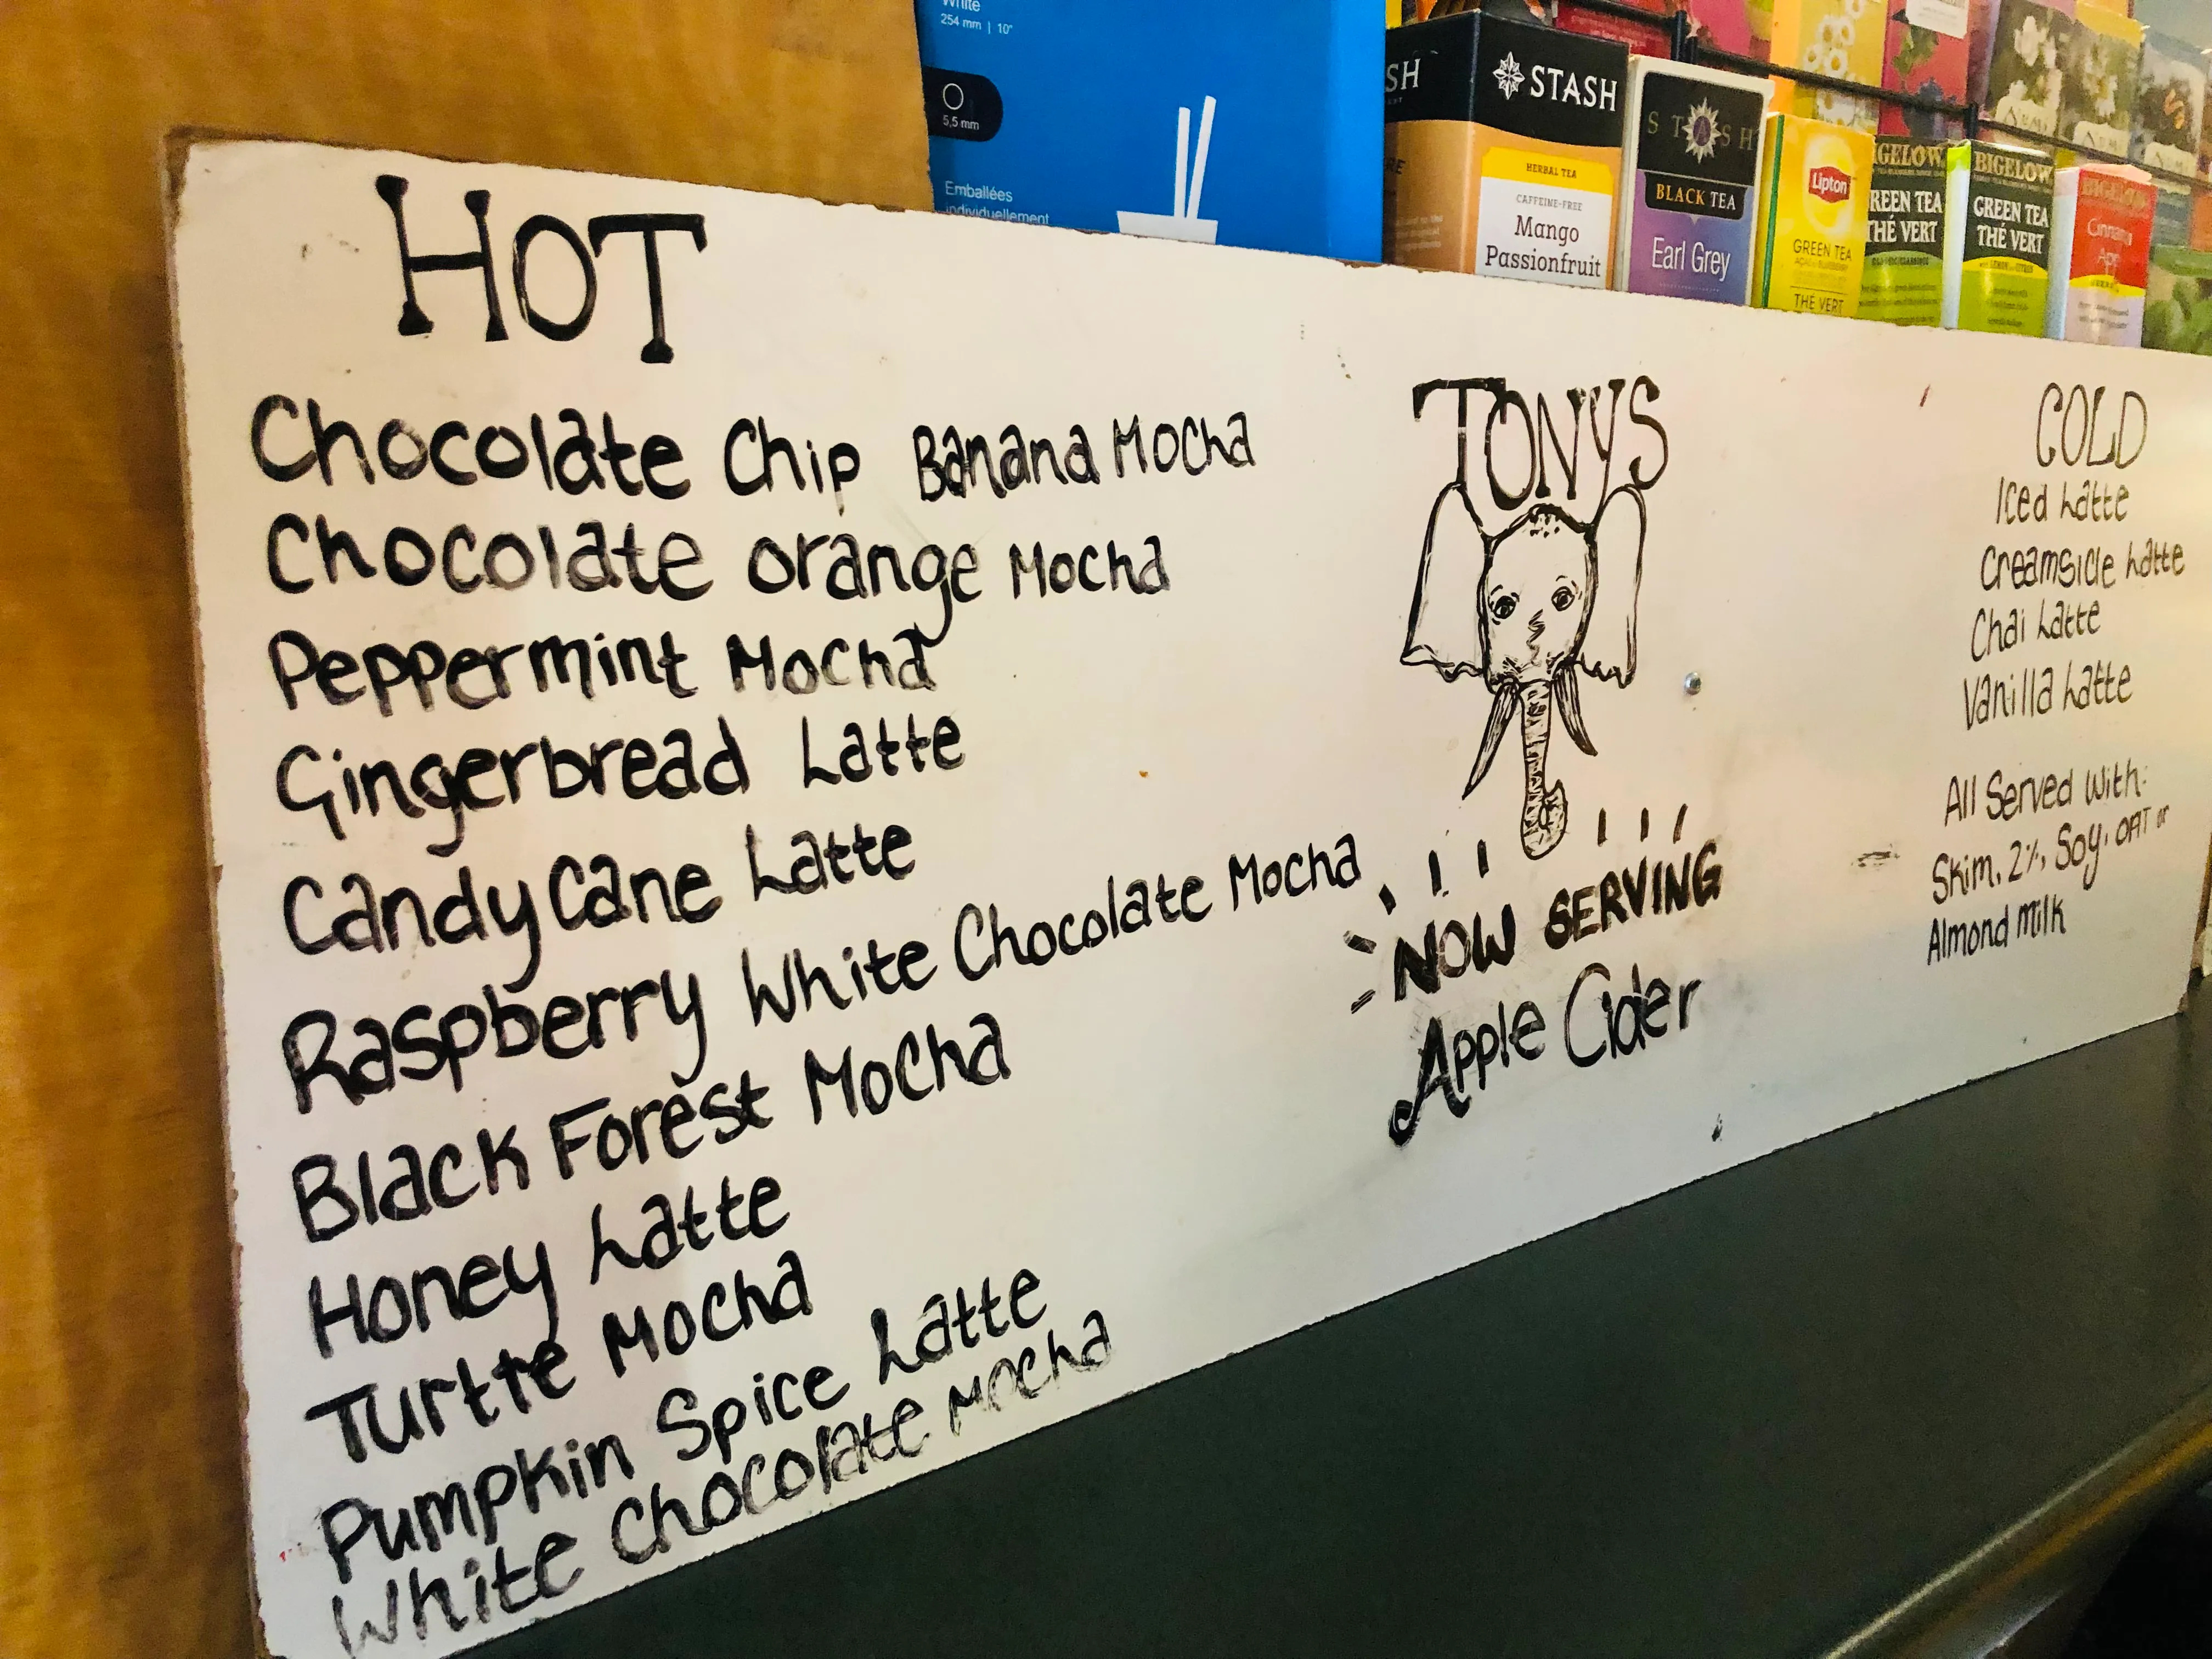 White
254 mm | 10"
5,5 mm
Emballées
individuellement
STASH
HERBAL TEA
CAFFEINE-FREE
Mango
Passionfruit
STASH
BLACK TEA
Earl Grey
Lipton
GREEN TEA
THÉ VERT
BIGELOW
GREEN TEA
THÉ VERT
BIGELOW
GREEN TEA
THÉ VERT
BIGELOW
HOT
Chocolate Chip Banana Mocha
Chocolate orange Mocha
Peppermint Mocha
Gingerbread Latte
Candy Cane Latte
Raspberry White Chocolate Mocha
Black Forest Mocha
Honey Latte
Turtle Mocha
Pumpkin Spice Latte
White Chocolate Mocha
TONYS
NOW SERVING
Apple Cider
COLD
Iced Latte
Creamsicle Latte
Chai Latte
Vanilla Latte
All Served With:
Skim, 2%, Soy, OAT or
Almond Milk